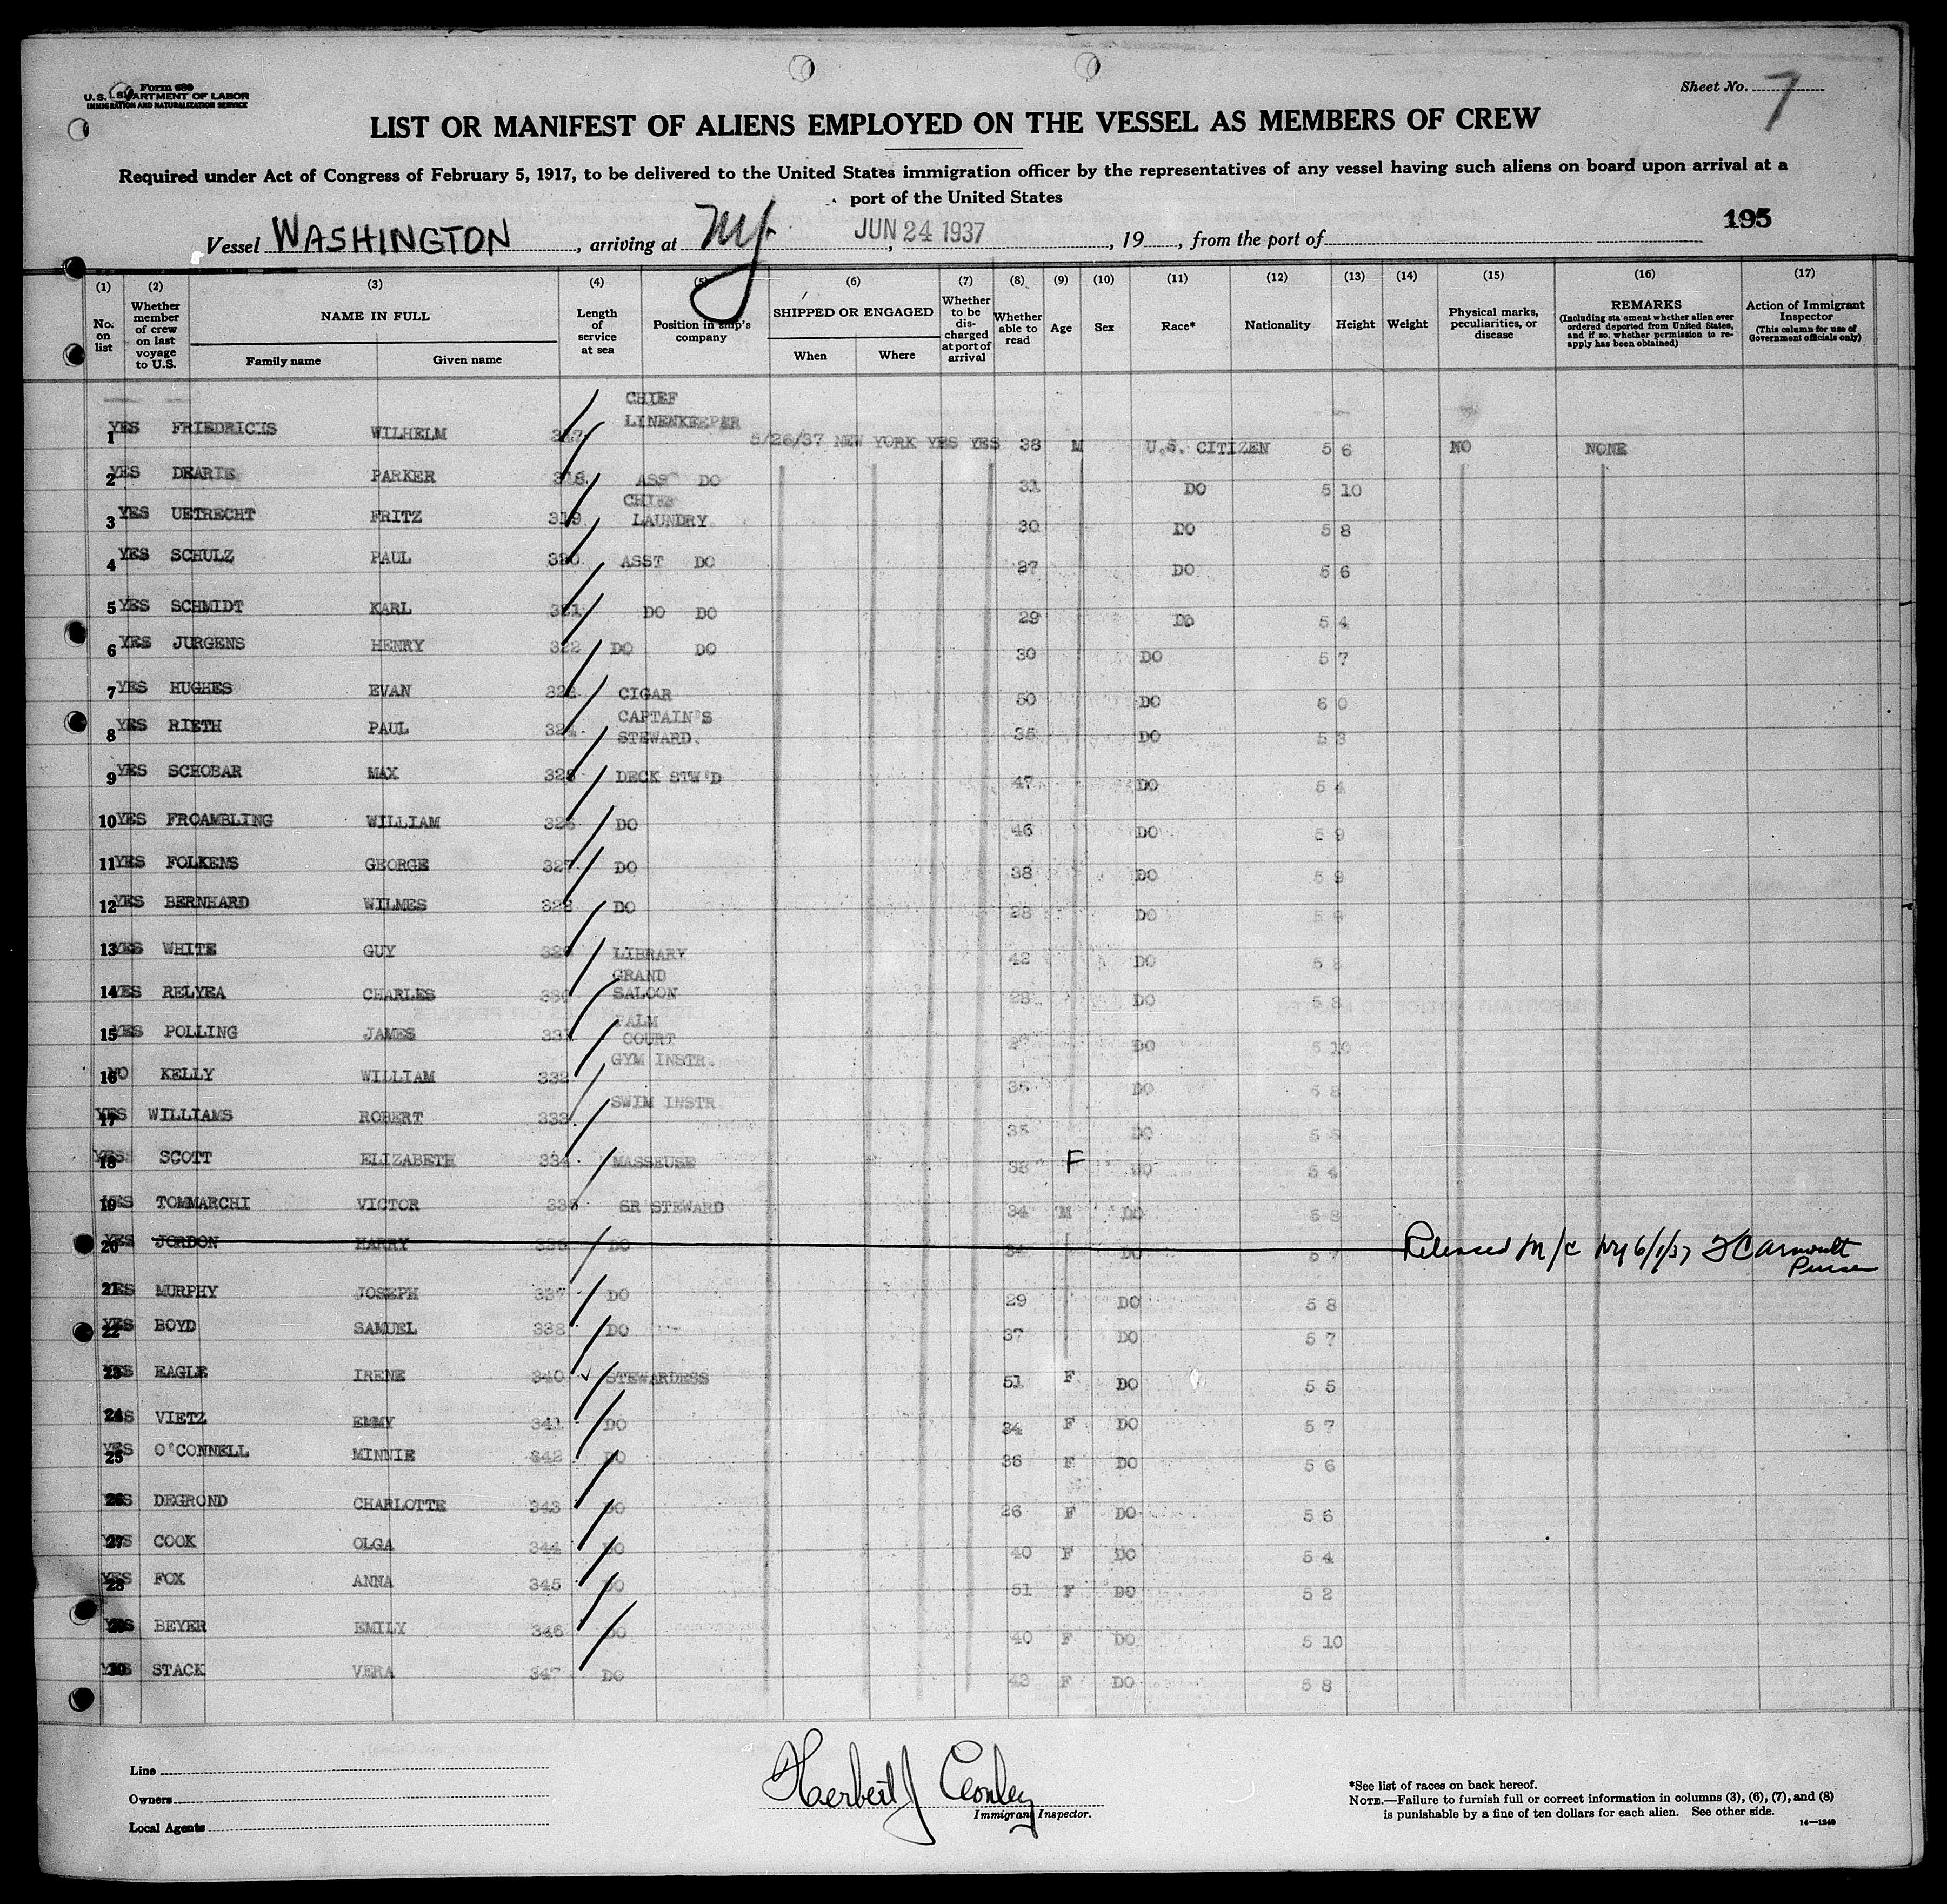 Form 680
U.S. DEPARTMENT OF LABOR
IMMIGRATION AND NATURALIZATION SERVICE
Sheet No. 7
LIST OR MANIFEST OF ALIENS EMPLOYED ON THE VESSEL AS MEMBERS OF CREW
Required under Act of Congress of February 5, 1917, to be delivered to the United States immigration officer by the representatives of any vessel having such aliens on board upon arrival at a
port of the United States
195
Vessel WASHINGTON, arriving at NY. JUN 24 1937, 19, from the port of
(1) (2) (3) (4) (5) (6) (7) (8) (9) (10) (11) (12) (13) (14) (15) (16) (17)
No. on list
Whether member of crew on last voyage to U.S.
NAME IN FULL
Family name
Given name
Length of service at sea
Position in ship's company
SHIPPED OR ENGAGED
When
Where
Whether to be discharged at port of arrival
Whether able to read
Age
Sex
Race*
Nationality
Height
Weight
Physical marks, peculiarities, or disease
REMARKS
(Including statement whether alien ever ordered deported from United States, and if so, whether permission to re-apply has been obtained)
Action of Immigrant Inspector
(This column for use of Government officials only)
1 YES FRIEDRICHS WILHELM 317 CHIEF LINENKEEPER 5/26/37 NEW YORK YES YES 38 M U.S. CITIZEN 5 6 NO NONE
2 YES DEARIE PARKER 318 ASST DO 31 DO 5 10
3 YES UETRECHT FRITZ 319 CHIEF LAUNDRY 30 DO 5 8
4 YES SCHULZ PAUL 320 ASST DO 37 DO 5 6
5 YES SCHMIDT KARL 321 DO DO 29 DO 5 4
6 YES JURGENS HENRY 322 DO DO 30 DO 5 7
7 YES HUGHES EVAN 323 CIGAR 50 DO 6 0
8 YES RIETH PAUL 324 CAPTAIN'S STEWARD 35 DO 5 8
9 YES SCHOBAR MAX 325 DECK STW'D 47 DO 5 4
10 YES FROAMBLING WILLIAM 326 DO 46 DO 5 9
11 YES FOLKENS GEORGE 327 DO 38 DO 5 9
12 YES BERNHARD WILMES 328 DO 28 DO 5 9
13 YES WHITE GUY 329 LIBRARY 42 DO 5 8
14 YES RELYEA CHARLES 330 GRAND SALOON 28 DO 5 8
15 YES POLLING JAMES 331 PALM COURT DO 5 10
16 NO KELLY WILLIAM 332 GYM INSTR. 35 DO 5 8
17 YES WILLIAMS ROBERT 333 SWIM INSTR. 35 DO 5
18 YES SCOTT ELIZABETH 334 MASSEUSE 38 F DO 5 4
19 YES TOMMARCHI VICTOR 335 SR STEWARD 34 M DO 5 8
20 YES JORDON HARRY 336 DO 34 DO 5 7 Released M/C NY 6/1/37 Purser
21 YES MURPHY JOSEPH 337 DO 29 DO 5 8
22 YES BOYD SAMUEL 338 DO 37 DO 5 7
23 YES EAGLE IRENE 340 STEWARDESS 51 F DO 5 5
24 YES VIETZ EMMY 341 DO 34 F DO 5 7
25 YES O'CONNELL MINNIE 342 DO 36 F DO 5 6
26 YES DEGROND CHARLOTTE 343 DO 26 F DO 5 6
27 YES COOK OLGA 344 DO 40 F DO 5 4
28 YES FOX ANNA 345 DO 51 F DO 5 2
29 YES BEYER EMILY 346 DO 40 F DO 5 10
30 YES STACK VERA 347 DO 43 F DO 5 8
Line
Owners
Local Agents
Herbert J Conley
Immigrant Inspector.
*See list of races on back hereof.
NOTE.—Failure to furnish full or correct information in columns (3), (6), (7), and (8)
is punishable by a fine of ten dollars for each alien. See other side.
14—1240